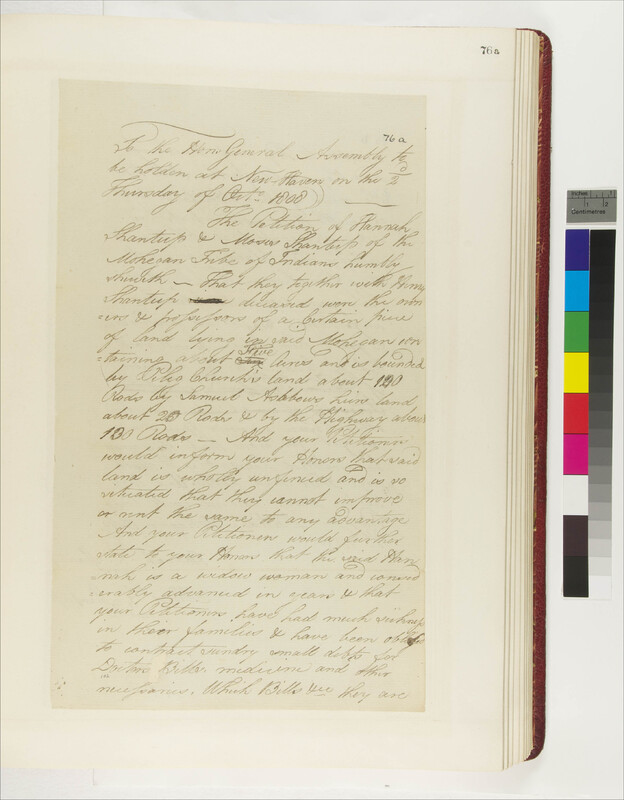 76a
76a
To the Hon. General Assembly to
be holden at New-Haven on the 2d
Thursday of Oct. 1808
The Petition of Hannah
Shantup & Moses Shantup of the
Mohegan Tribe of Indians humbly
sheweth – That they together with Henry
Shantup deceased were the own
=ers & possessors of a Certain piece
of land lying in said Mohegan con
=taining about five acres and is bounded
by Peleg Church's land about 120
Rods by Samuel Ashbows heirs land
about 20 Rods & by the Highway about
100 Rods — And your Petitioners
would inform your Honors that said
land is wholly unfenced and is so
situated that they cannot improve
or rent the same to any advantage
And your Petitioners would further
state to your Honors that the said Han
=nah is a widow woman and consid
=erably advanced in years & that
your Petitioners have had much sickness
in their families & have been obliged
to contract sundry small debts for
Doctors Bills medicine and other
necessaries. Which Bills &cc they are
Inches 1 2
Centimetres